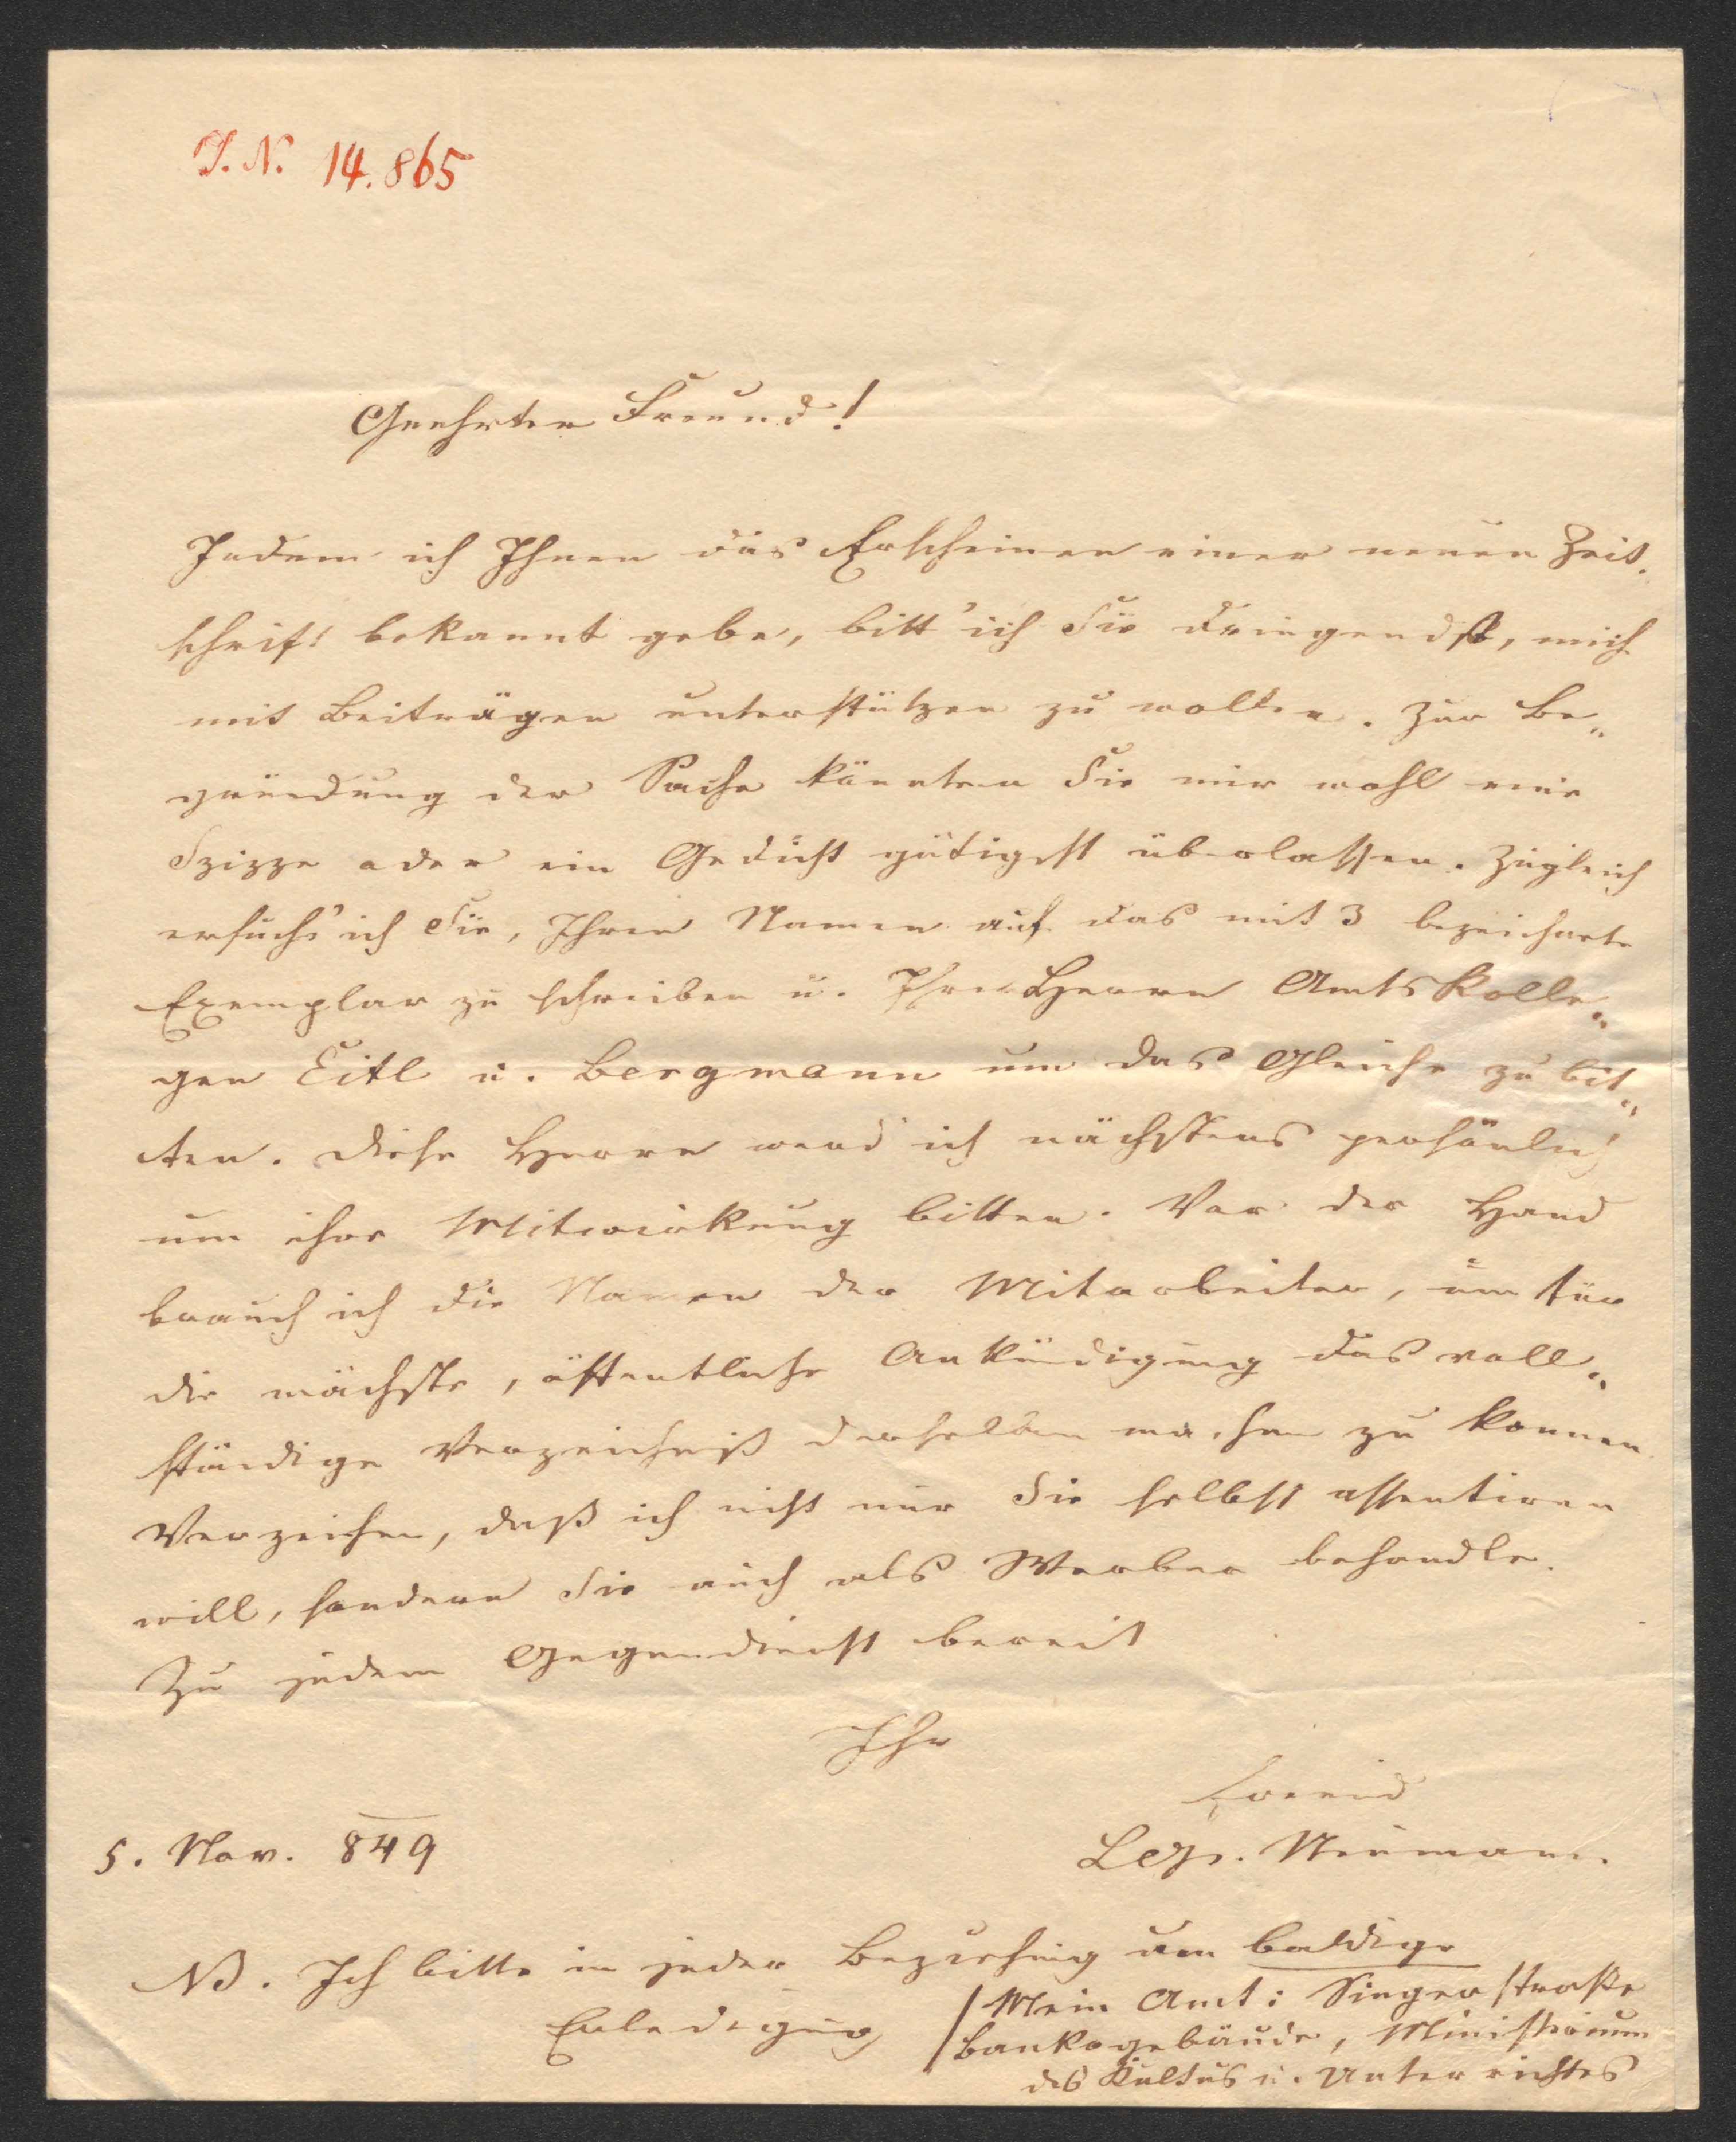 I. N. 14.865
Geehrter Freund!
Indem ich Ihnen das Erscheinen einer neuen Zeit-
schrift bekannt gebe, bitt' ich Sie dringendst, mich
mit Beiträgen unterstützen zu wollen. Zur Be„
gründung der Sache könnten Sie mir wohl eine
Szizze oder ein Gedicht gütigst überlassen. Zugleich
ersuch' ich Sie, Ihren Namen auf das mit 3 bezeichnete
Exemplar zu schreiben u. Ihre Herrn Amtskolle„
gen Eitl u. Bergmann um das Gleiche zu bit„
ten. Diese Herrn werd' ich nächstens persönlich
um ihre Mitwirkung bitten. Vor der Hand
brauch ich die Namen der Mitarbeiter, um für
die nächste, öffentliche Ankündigung das voll„
ständige Verzeichniß derselben machen zu können
Verzeihen, daß ich nicht nur Sie selbst assentiren
will, sondern Sie auch als Werber behandle.
Zu jedem Gegendienst bereit
Ihr
Freund
Leop. Neumann.
5. Nov. 849
NB. Ich bitte in jeder Beziehung um baldige
Erledigung
Mein Amt: Singerstraße
Bankogebäude, Ministerium
des Kultus u. Unterrichtes